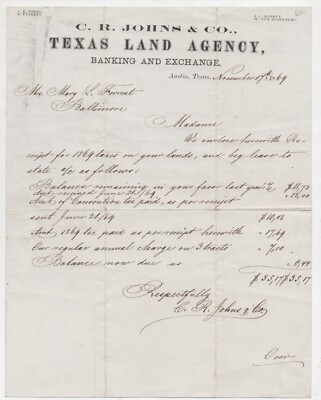 C. R. JOHNS & CO.,
TEXAS LAND AGENCY,
BANKING AND EXCHANGE,
Austin, Texas, November 17th 1869
Mrs. Mary L. Forrest
Baltimore
Madame
We inclose herewith Re-
ceipt for 1869 taxes on your lands, and beg leave to
state % as follows:
Balance remaining in your favor last year's %
Amt. received June 21/69
Amt of Convention tax paid, as per receipt
sent June 21/69 $10,08
Amt, 1869 tax paid as per receipt herewith " 17,69
Our regular annual charge on 3 tracts " 7,00
Balance now due us
$35,17 $35,17
Respectfully
C. R. Johns & Co.
Over